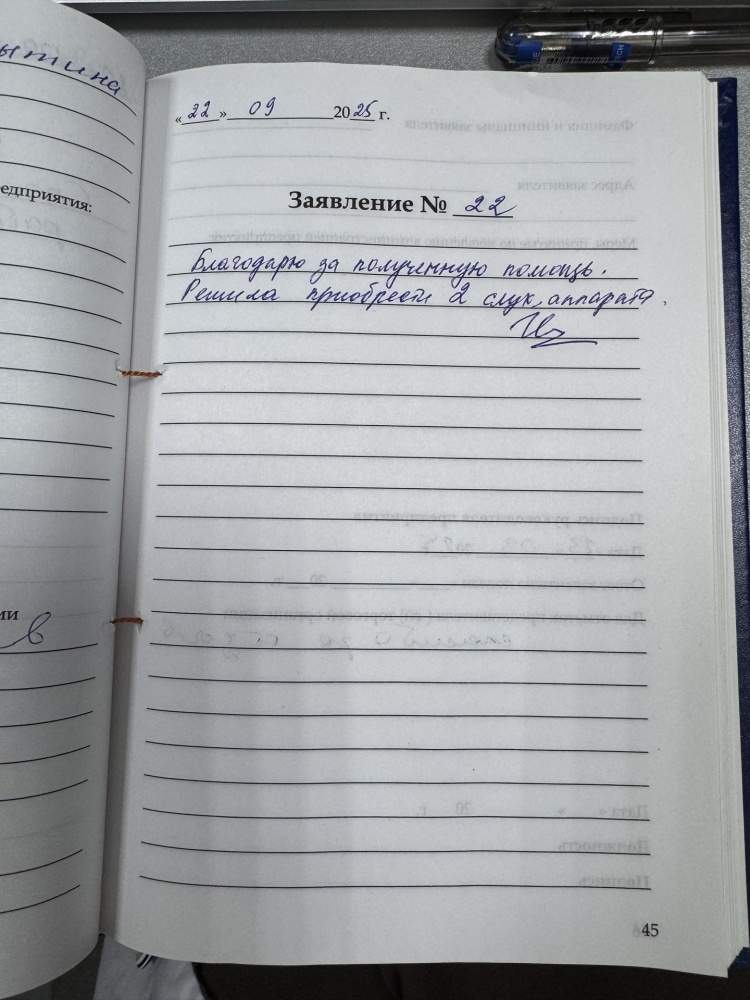 ытина
едприятия:
ии
«22» 09 2025 г.
Заявление № 22
Благодарю за полученную помощь.
Решила приобрести 2 слух. аппарата.
45